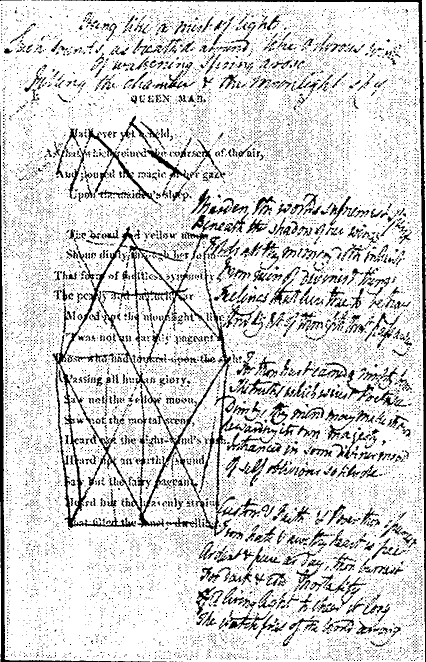 Being like a mist of light
Such sounds, as breathed around, like odorous winds
Of wakening spring arose
Filling the chamber & the moonlight sky
QUEEN MAB.
Hath ever yet beheld,
As that which reined the coursers of the air,
And poured the magic of her gaze
Upon the maiden's sleep.
Maiden, the world's supremest spirit
Beneath the shadow of her wings
The broad and yellow moon
Shone dimly through her form
That form of faultless symmetry
The pearly and pellucid car
Moved not the moonlight's line
'Twas not an earthly pageant
Those who had looked upon the sight
Passing all human glory,
Saw not the yellow moon,
Saw not the mortal scene,
Heard not the night-wind's rush,
Heard not an earthly sound,
Saw but the fairy pageant,
Heard but the heavenly strains
That filled the lonely dwelling
From ruin of divinest things
Feelings that lure thee to betray
And light of thoughts that pass away
For thou hast earned a mighty boon
Dimly, thy mind may make its own
Rewarding its own majesty,
Entranced in some diviner mood
Of self oblivious solitude
Custom & Faith & Power thou spurnest
From hate & awe thy heart is free
Ardent & pure as day thou burnest
For dark & cold mortality
A living light to cheer it long
The watch fires of the world among